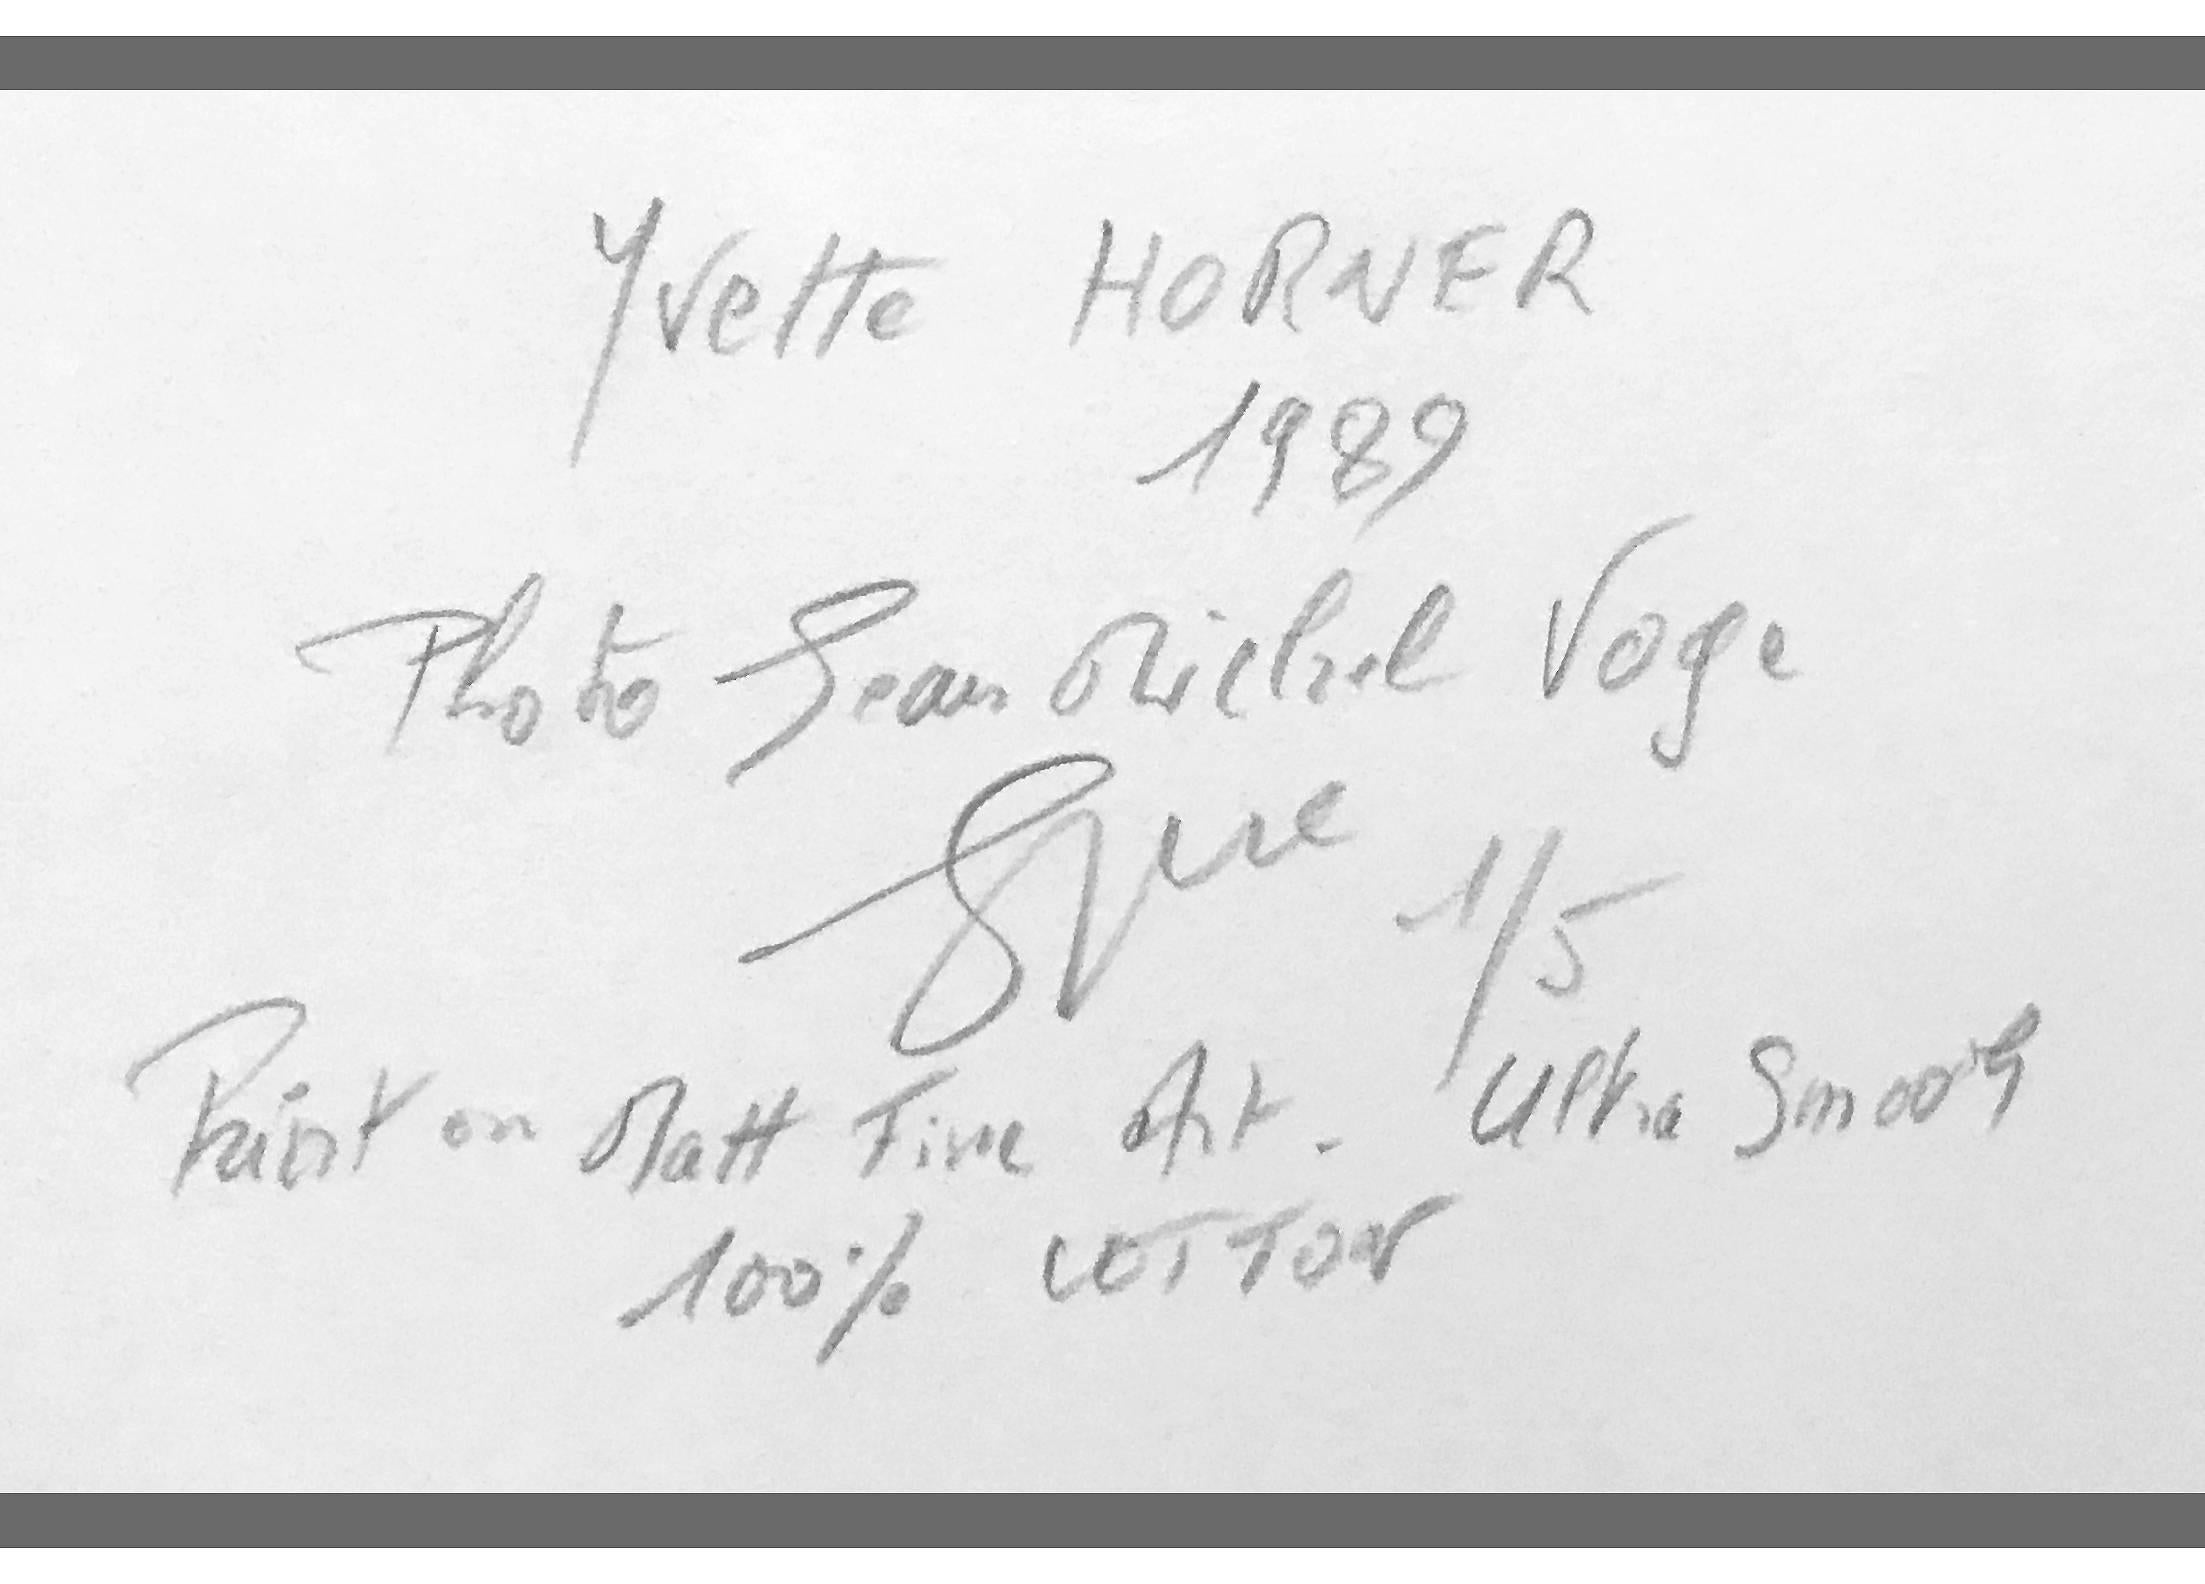 Yvette HORNER
1989
Photo Jean Michel Voge
1/5
Paint on Matt Fine Art - Ultra Smooth
100% COTTON